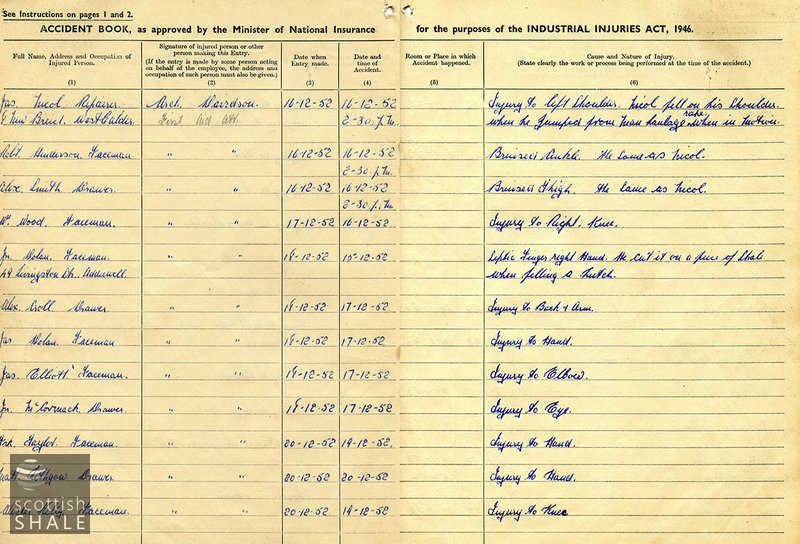 See Instructions on pages 1 and 2.
ACCIDENT BOOK, as approved by the Minister of National Insurance for the purposes of the INDUSTRIAL INJURIES ACT, 1946.
Full Name, Address and Occupation of Injured Person. (1)
Signature of injured person or other person making this Entry. (If the entry is made by some person acting on behalf of the employee, the address and occupation of such person must also be given.) (2)
Date when Entry made. (3)
Date and time of Accident. (4)
Room or Place in which Accident happened. (5)
Cause and Nature of Injury. (State clearly the work or process being performed at the time of the accident.) (6)
Jas. Nicol Repairer. Arch. Davidson. 16-12-52 16-12-52 Injury to left Shoulder. Nicol fell on his Shoulder
West Calder First Aid Att. 2-30. p.m. when he jumped from man haulage rake when in motion.
Robt. Henderson. Faceman " " 16-12-52 16-12-52 Bruised Ankle. The Same as Nicol.
2-30 p.m.
Alex. Smith Drawer. " " 16-12-52 16-12-52 Bruised Thigh. The Same as Nicol.
2-30 p.m.
Wm. Wood. Faceman. " " 17-12-52 16-12-52 Injury to Right. Knee.
Jn. Dolan. Faceman. " " 18-12-52 15-12-52 Septic Finger right Hand. He cut it on a piece of Shale
Livingston St. Addiewell when filling a Hutch.
Alex. Croll Drawer. " " 18-12-52 17-12-52 Injury to Back & Arm.
Jas. Dolan. Faceman " " 18-12-52 17-12-52 Injury to Hand.
Jas. Elliott Faceman " " 18-12-52 17-12-52 Injury to Elbow.
Jn. McCormack Drawer. " " 18-12-52 17-12-52 Injury to Eye.
Taylor Faceman. " " 20-12-52 19-12-52. Injury to Hand.
Drawer " " 20-12-52 20-12-52 Injury to Hand.
Kelly. Faceman. " " 20-12-52 19-12-52 Injury to Knee
scottish
SHALE